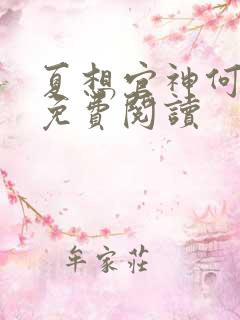 夏想官神何
免費閱讀
牟家莊